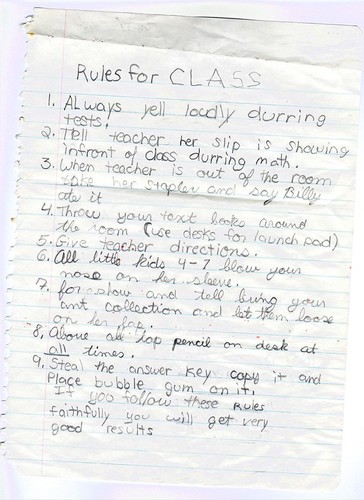 Rules for CLASS
1. ALways yell loudly durring
tests!
2. Tell teacher her slip is showing
infront of class durring math.
3. When teacher is out of the room
take her stapler and say Billy
ate it
4. Throw your text books around
the room (use desks for launch pad)
5. Give teacher directions.
6. All little kids 4-7 blow your
nose on her sleeve.
7. for show and tell bring your
ant collection and let them loose
on her lap.
8, Above all tap pencil on desk at
all times.
9, Steal the answer key copy it and
Place bubble gum on it.
If you follow these Rules
faithfully you will get very
good results